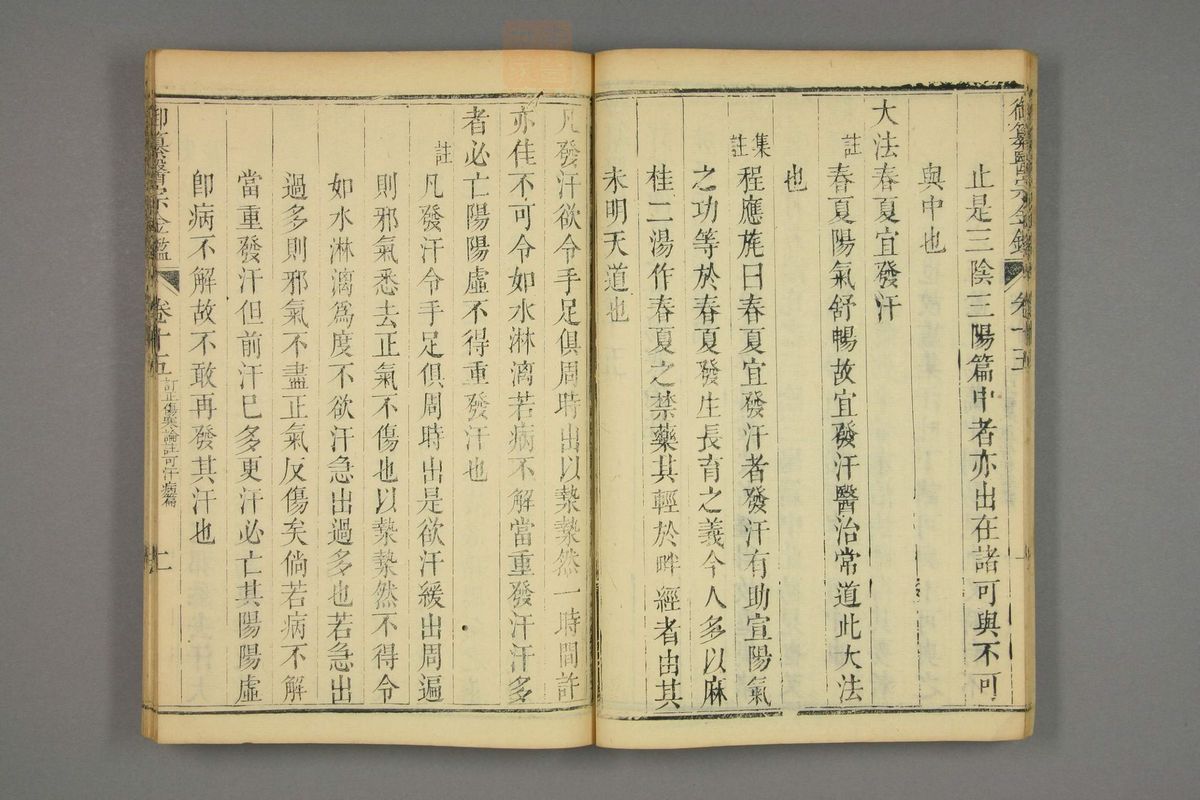 御纂醫宗金鑑 卷十五
止是三陰三陽篇中者亦出在諸可與不可
與中也
大法春夏宜發汗
註 春夏陽氣舒暢故宜發汗醫治常道此大法
也
集註 程應旄曰春夏宜發汗者發汗有助宣陽氣
之功等於春夏發生長育之義今人多以麻
桂二湯作春夏之禁藥其輕於畔經者由其
未明天道也
凡發汗欲令手足俱周時出以漐漐然一時間許
亦佳不可令如水淋漓若病不解當重發汗汗多
者必亡陽陽虛不得重發汗也
註 凡發汗令手足俱周時出是欲汗緩出周遍
則邪氣悉去正氣不傷也以漐漐然不得令
如水淋漓爲度不欲汗急出過多也若急出
過多則邪氣不盡正氣反傷矣倘若病不解
當重發汗但前汗已多更汗必亡其陽陽虛
卽病不解故不敢再發其汗也
御纂醫宗金鑑 卷十五 訂正傷寒論註可汗病篇